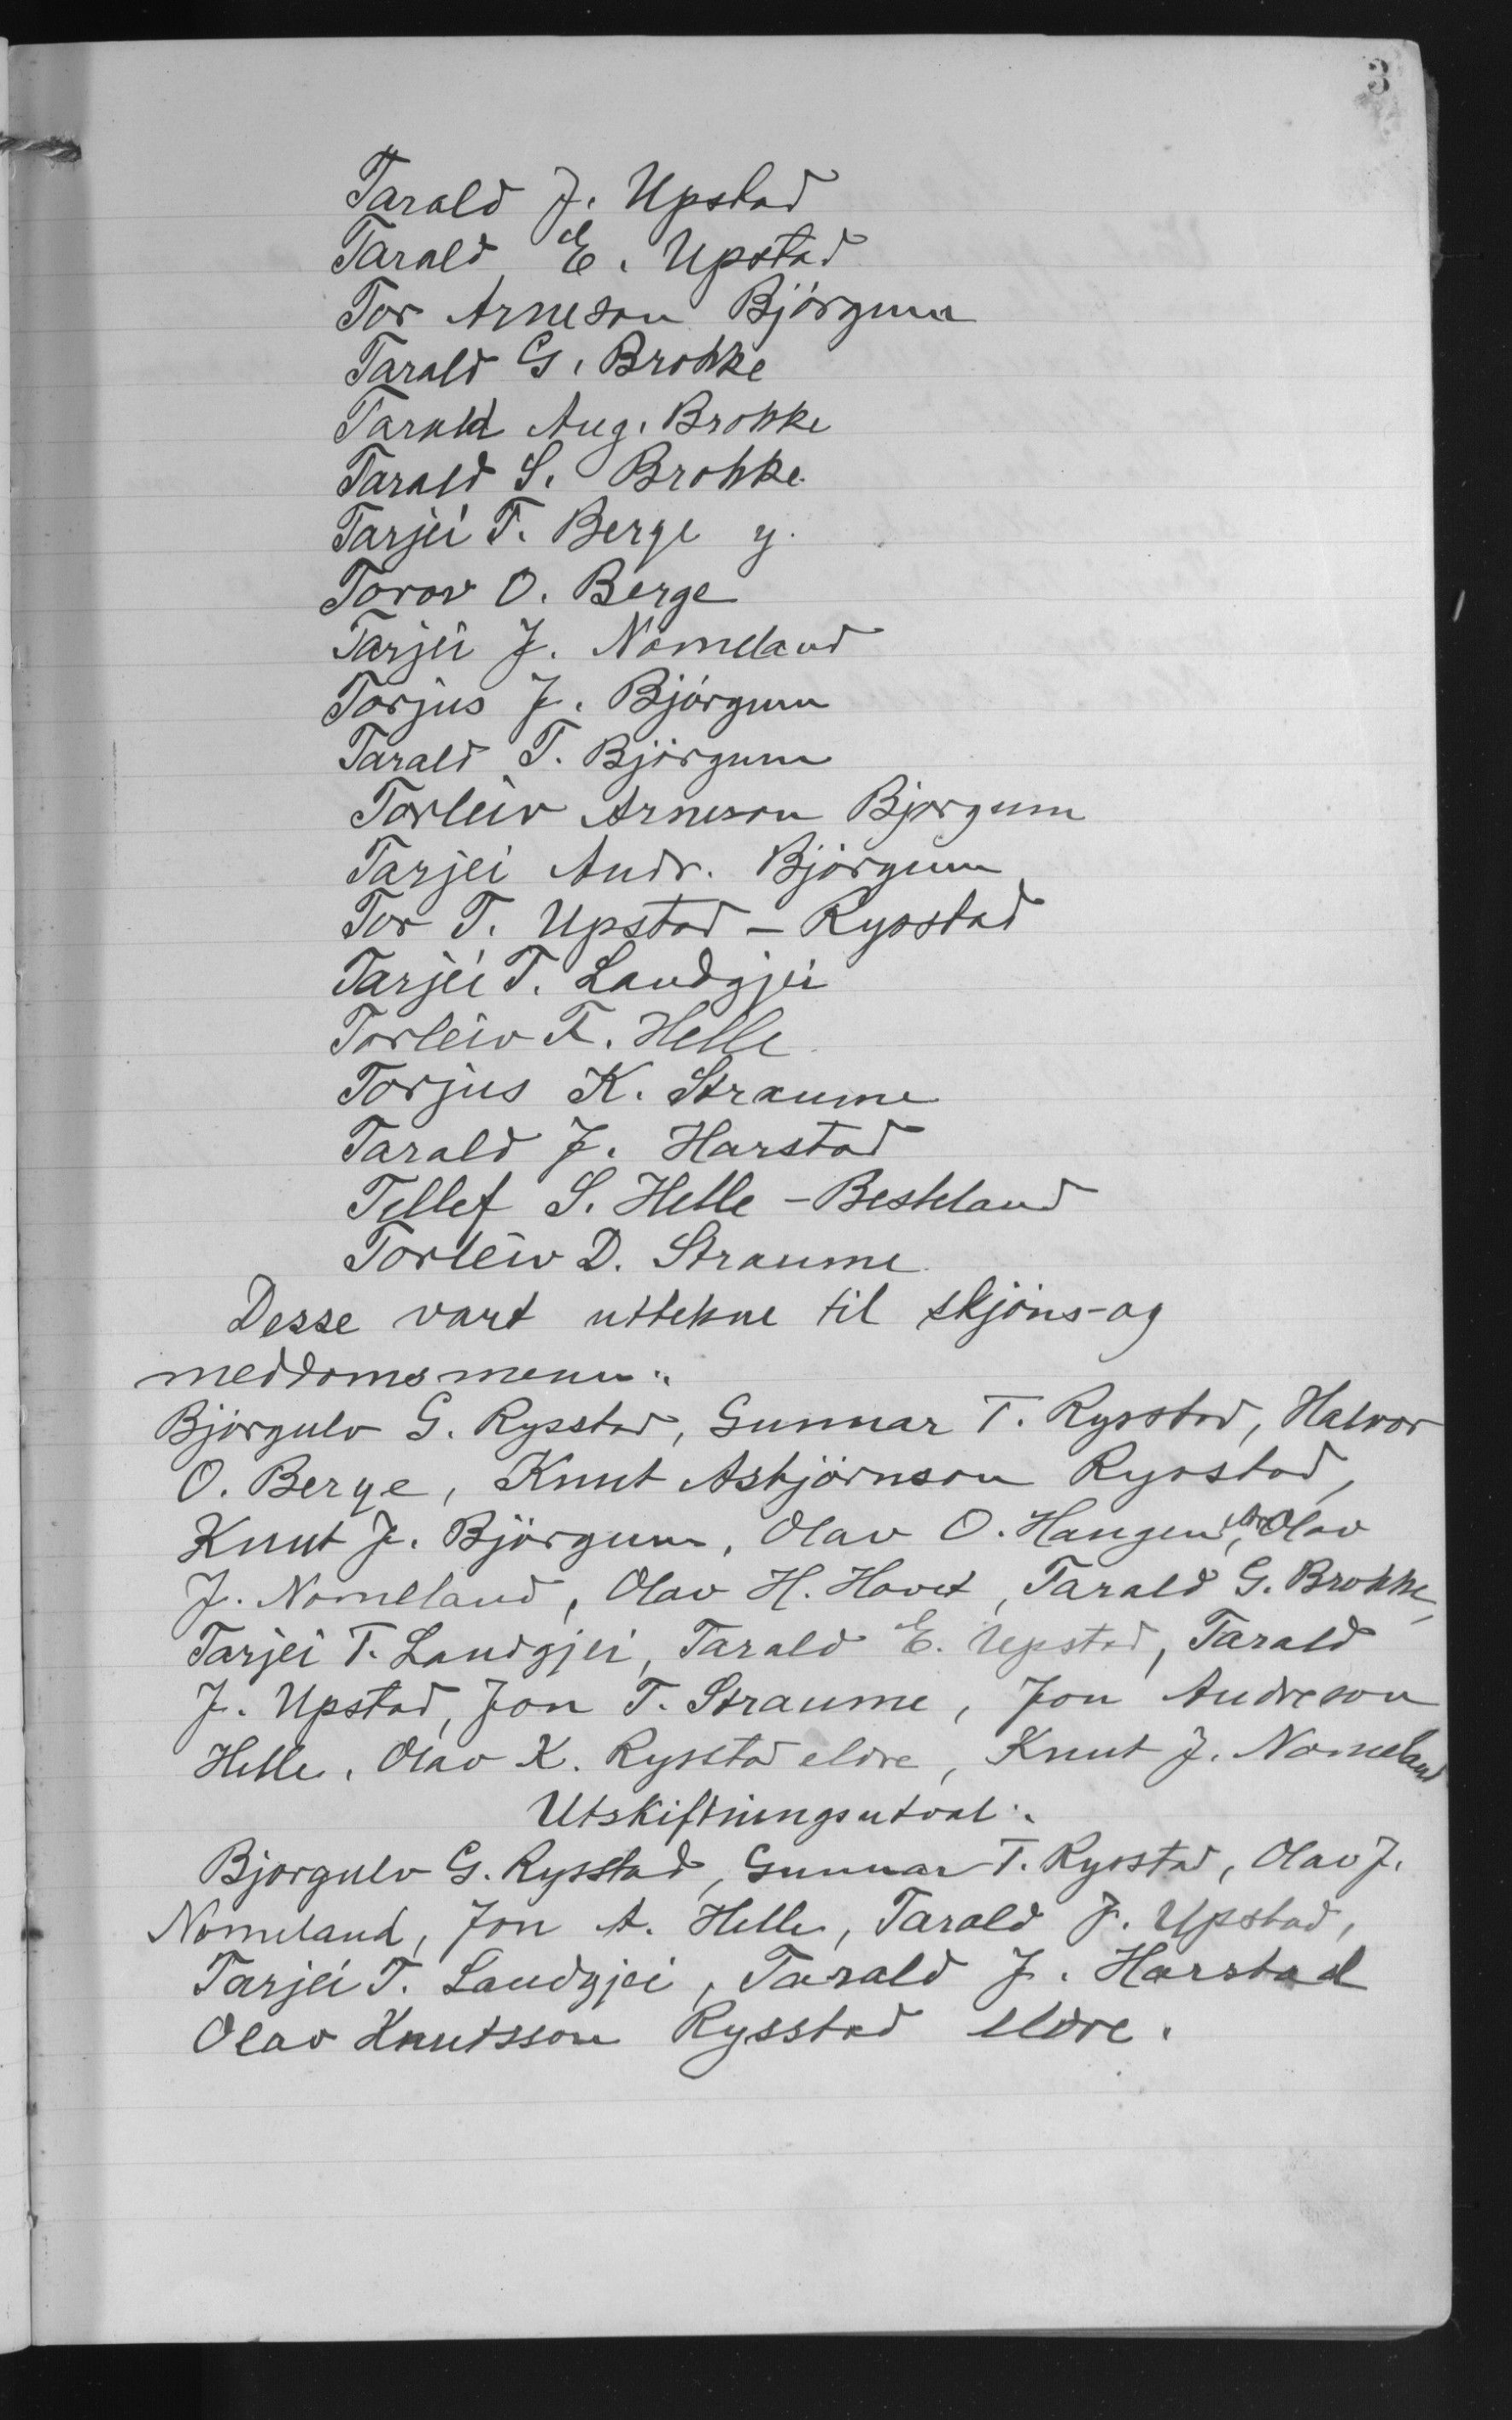 3
Tarald J. Upstad
Tarald E. Upstad
Tor Arneson Björgum
Tarald G. Brokke
Tarald Aug. Brokke
Tarald S. Brokke
Tarjei T. Berge y.
Torov O. Berge
Tarjei J. Nomeland
Torjus J. Björgum
Tarald T. Björgum
Torleiv Arneson Bjorgum
Tarjei Andr. Björgum
Tor T. Upstad - Rysstad
Tarjei T. Landgjei
Torleiv T. Helle
Torjus K. Straume
Tarald J. Harstad
Tellef S. Helle - Besteland
Torleiv D. Straume
Desse vart uttekne til skjöns- og
meddomsmenn:
Björgulv G. Rysstad, Gunnar T. Rysstad, Halvor
O. Berge, Knut Asbjörnson Rysstad,
Knut J. Björgum, Olav O. Haugen, Olav
J. Nomeland, Olav H. Hovet, Tarald G. Brokke,
Tarjei T. Landgjei, Tarald E. Upstad, Tarald
J. Upstad, Jon T. Straume, Jon Andreson
Helle, Olav K. Rysstad eldre, Knut J. Nomeland
Utskiftningsutval:
Bjorgulv G. Rysstad, Gunnar T. Rysstad, Olav J.
Nomeland, Jon A. Helle, Tarald J. Upstad,
Tarjei T. Landgjei, Tarald J. Harstad
Olav Knutsson Rysstad eldre.